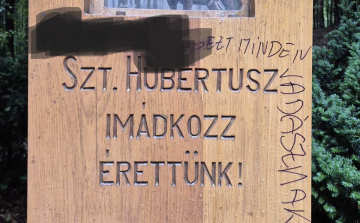 EZT MINDEN
VADÁSZNAK
SZT. HUBERTUSZ
IMÁDKOZZ
ÉRETTÜNK!